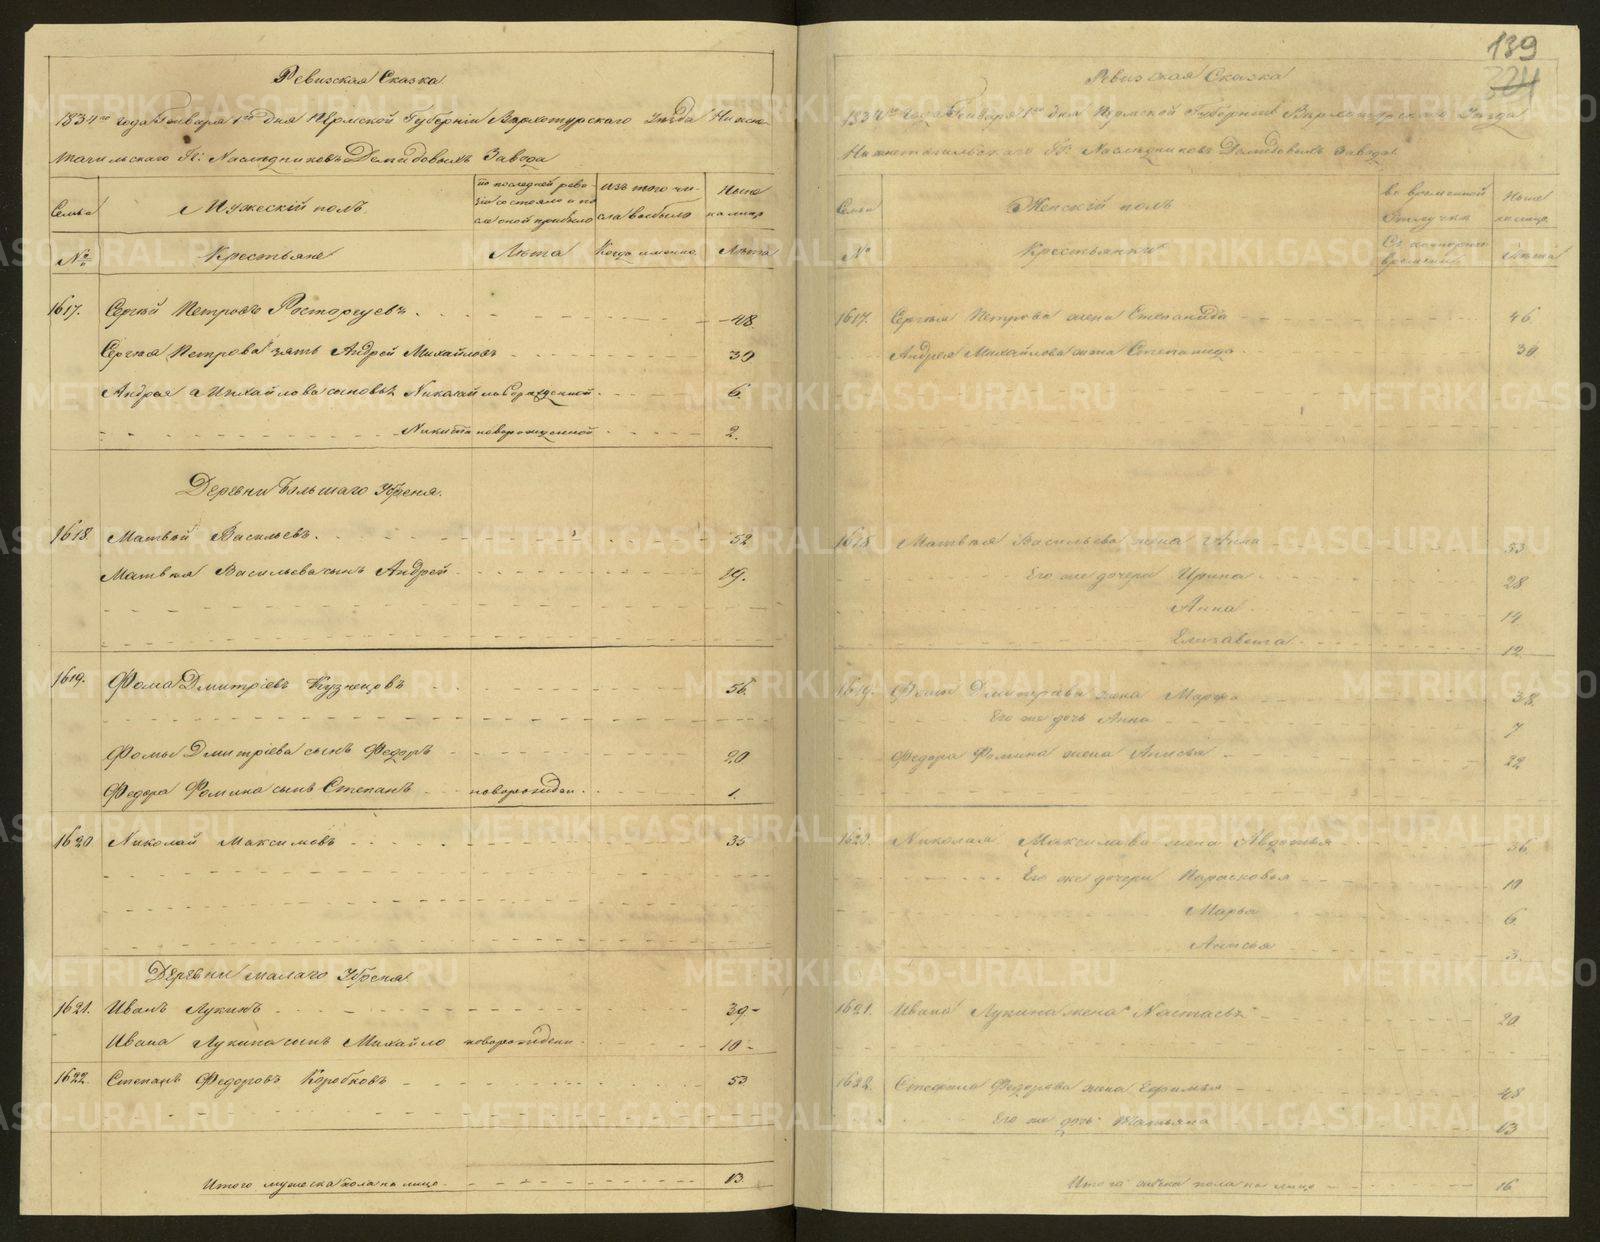 Ревизская Сказка
1834го года Генваря 1го дня Пермской Губернiи Верхотурскаго Уѣзда Нижне-
тагильскаго Гг: Наслѣдниковъ Демидовыхъ Завода
Семьи
Мужескiй полъ.
по последней реви-
зiи состояло и по
сле оной прибыло
изъ того чи-
сла выбыло
Ныне
на лицо
№
Крестьяне
Лѣта
Когда именно
Лѣта
1617. Сергѣй Петровъ Расторгуевъ 48
Сергѣя Петрова зять Андрей Михайловъ 30
Андрея Михайлова сыновья Николай новорожденной 6
Никита новорожденной 2.
Деревни Большаго
1618. Матвѣй Васильевъ 52
Матвѣя Васильева сынъ Андрей 19.
1619. Фома Дмитрiевъ Кузнецовъ 56.
Фомы Дмитрiева сынъ Федоръ 20
Федора Фомина сынъ Степанъ новорожден. 1.
1620 Николай Максимовъ 35
Деревни малаго
1621. Иванъ Лукинъ 39
Ивана Лукина сынъ Михайло новорожден 10
1622. Степанъ Федоровъ Коробковъ 53
Итого мужеска пола на лицо 13
139
324
Ревизская Сказка
1834го года Генваря 1го дня Пермской Губернiи Верхотурскаго Уѣзда
Нижнетагильскаго Гг: Наслѣдниковъ Демидовыхъ Завода
Семьи
Женскiй полъ
во временной
отлучки
Ныне
на лицо.
№
Крестьянки
Съ котораго
времени
Лѣта
1617. Сергѣя Петрова жена Степанида 46
Андрея Михайлова жена Степанида 30
1618. Матвѣя Васильева жена Анна 53
Его же дочери Ирина 28
Анна 14
Елизавета 12
1619. Фомы Дмитрiева жена Марфа 38.
Его же дочь Анна 7
Федора Фомина жена Анисья 22
1620. Николая Максимова жена Авдотья 36
Его же дочери Парасковья 10
Марья 6
Анисья 3.
1621. Ивана Лукина жена Настасья 20
1622. Степана Федорова жена Ефимья 48
Его же дочь Татьяна 13
Итого женска пола на лицо 16
METRIKI.GASO-URAL.RU